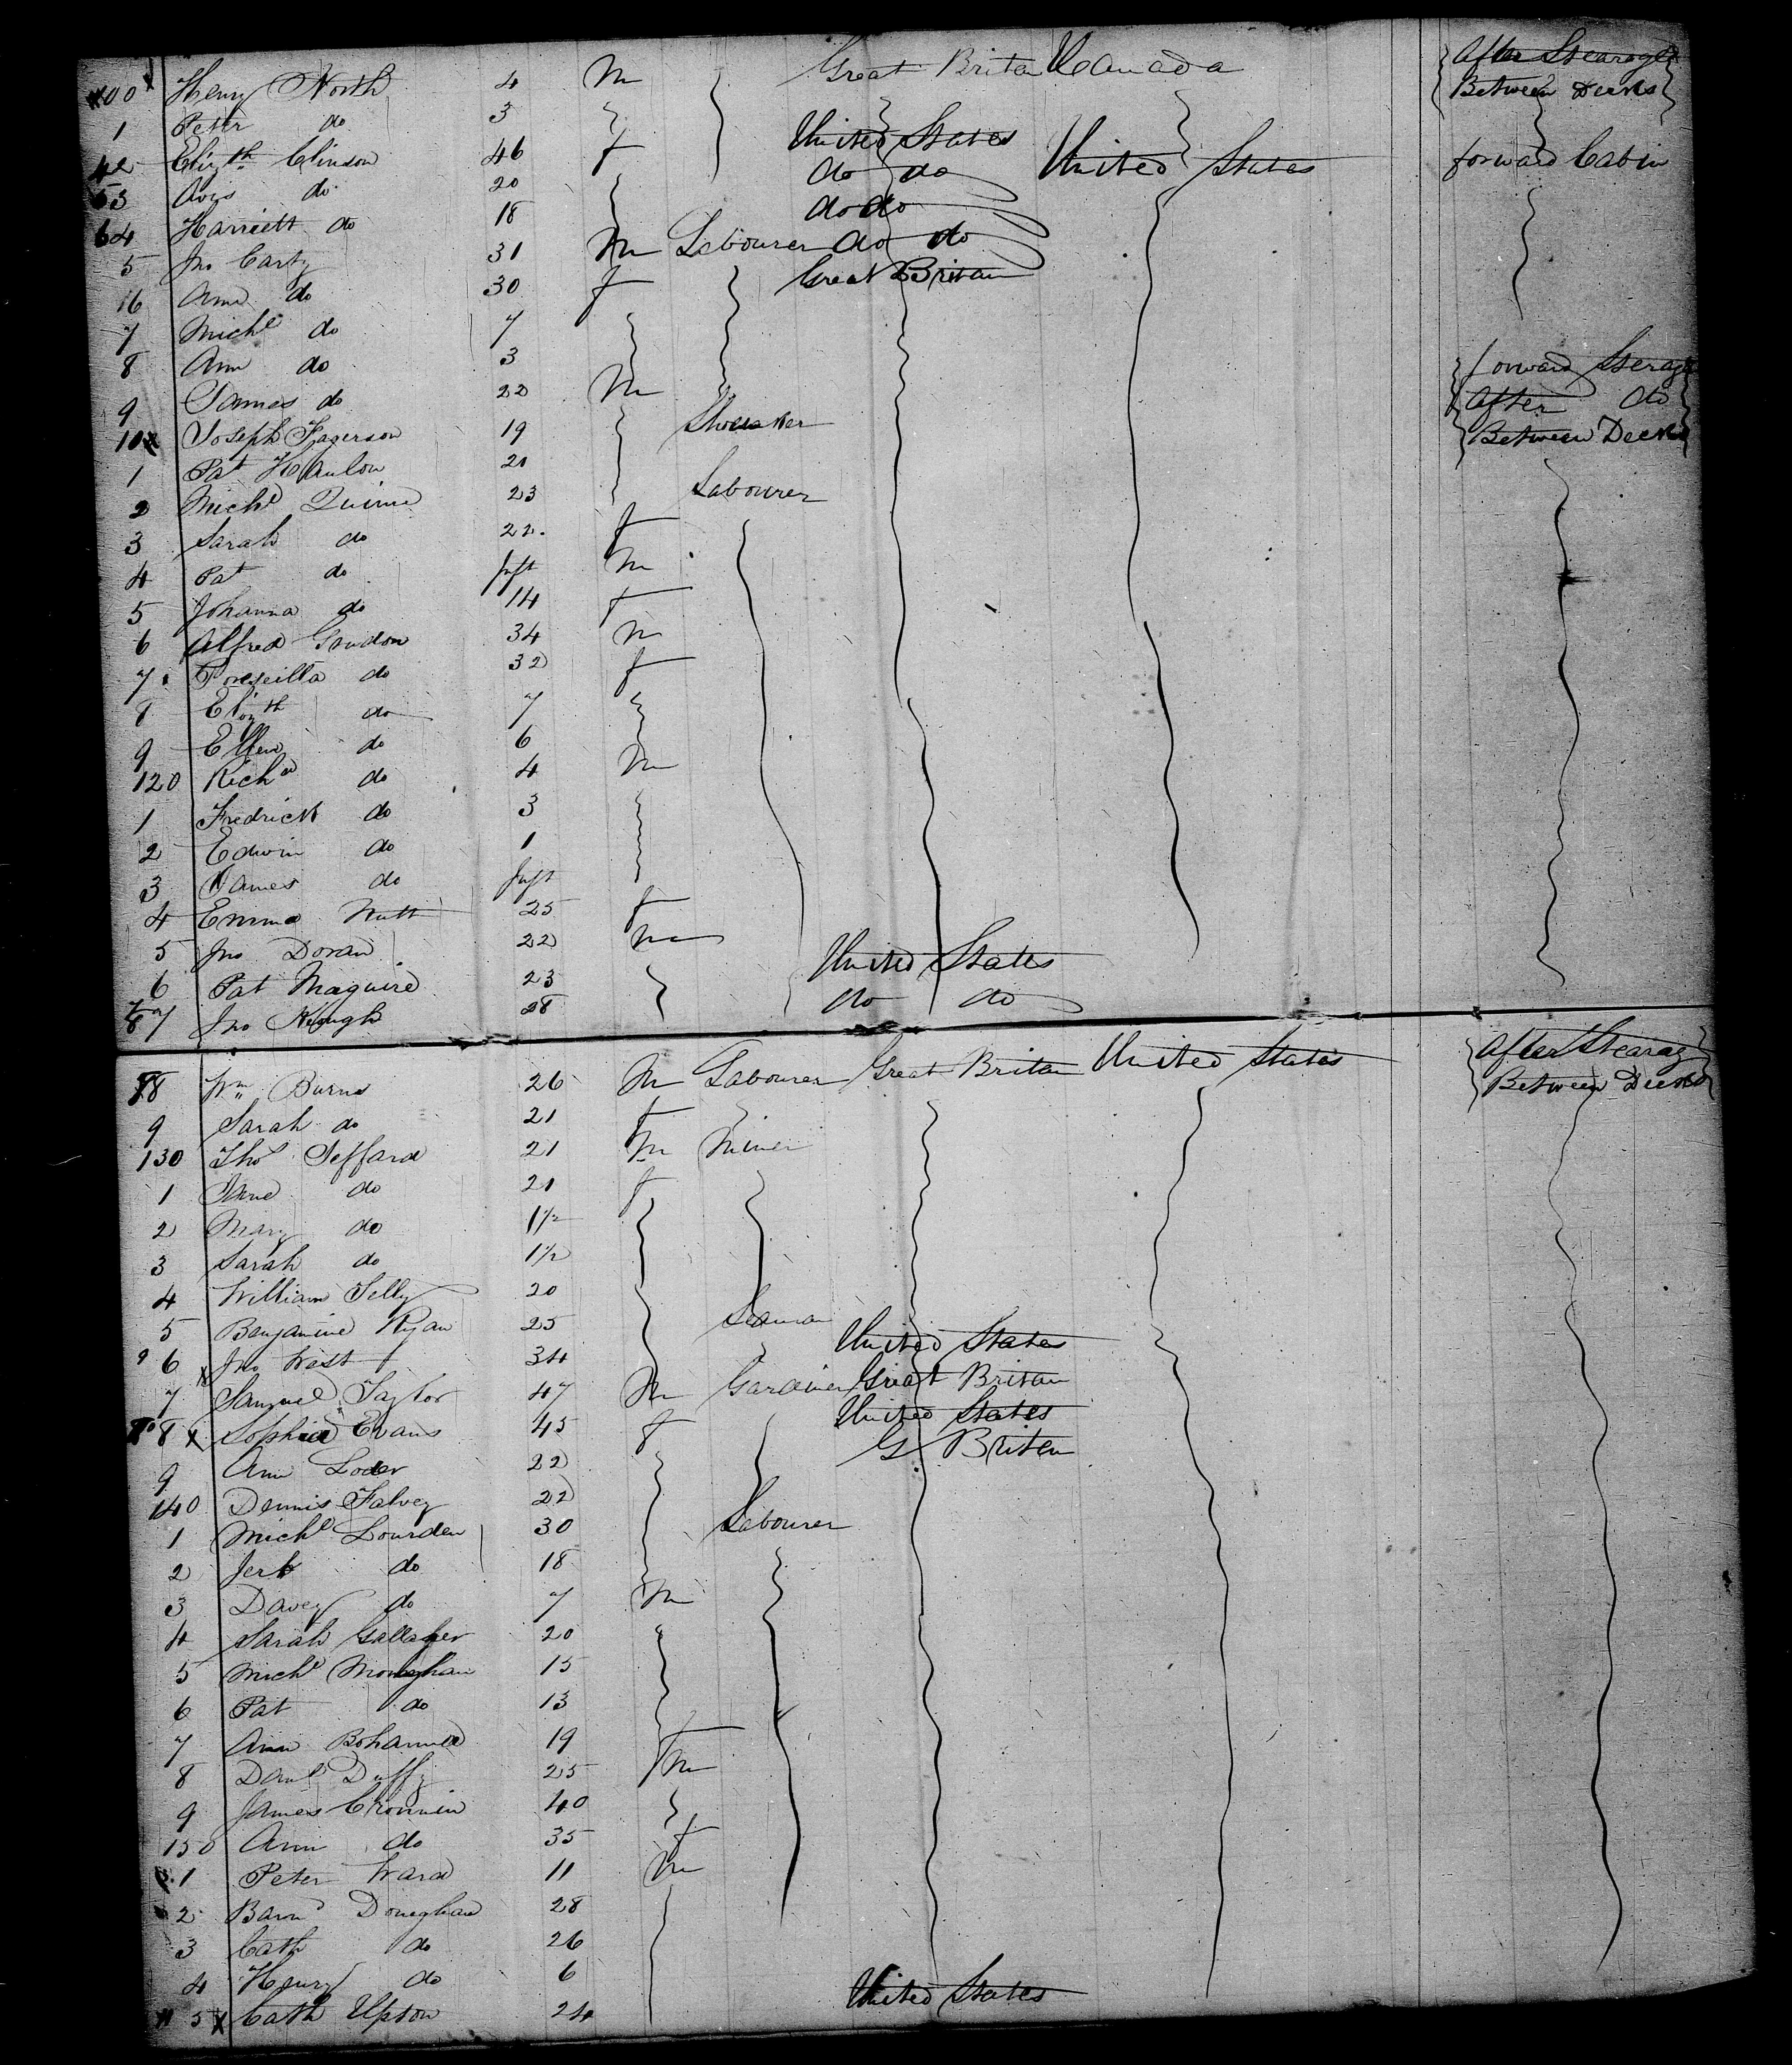 100 Henry North 4 m Great Britan Canada After Stearage
Between Decks
1 Peter do 3
2 Elizth Clinson 46 f United States United States forward Cabin
3 do 20 do do
4 Harriett do 18 do do
5 Jno Carty 31 m Labourer do do
6 Ann do 30 f Great Britan
7 Michl do 7
8 Ann do 3 forward Sterage
9 James do 22 m After do
10 Joseph Fagerson 19 Between Decks
1 Pat Hanlon 21
2 Michl Quinn 23 Labourer
3 Sarah do 22 f
4 Pat do Inft m
5 Johanna do 14 f
6 Alfred 34 m
7 do 32 f
8 Elizth do 7
9 Ellen do 6
120 Richd do 4 m
1 Fredrick do 3
2 Edwin do 1
3 James do Inft
4 Emma Nutt 25 f
5 Jno Doran 22 m
6 Pat Maguire 23 United States
7 Jno Keough 28 do do
8 Wm Burns 26 m Labourer Great Britan United States After Stearag
Between Decks
9 Sarah do 21 f
130 Thos Jeffard 21 m Miner
1 Jane do 21 f
2 Mary do 1½
3 Sarah do 1½
4 William Selly 20
5 Benjamine Ryan 25 Seaman
6 Jno West 34 United States
7 Samuel Taylor 47 m Gardiner Great Britan
8 Sophia Evans 45 f United States
9 Ann Loder 22 G Britan
140 Dennis Falvey 22
1 Michl Lourden 30 Labourer
2 do 18
3 Davey do 7 m
4 Sarah Gallagher 20
5 Michl Moneghan 15
6 Pat do 13
7 Ann 19 f
8 Danl Duffy 25 m
9 James Cronnin 40
150 Ann do 35 f
1 Peter Ward 11 m
2 Barnd Doneghan 28
3 Cath do 26
4 Henry do 6
5 Cath Upton 24 United States